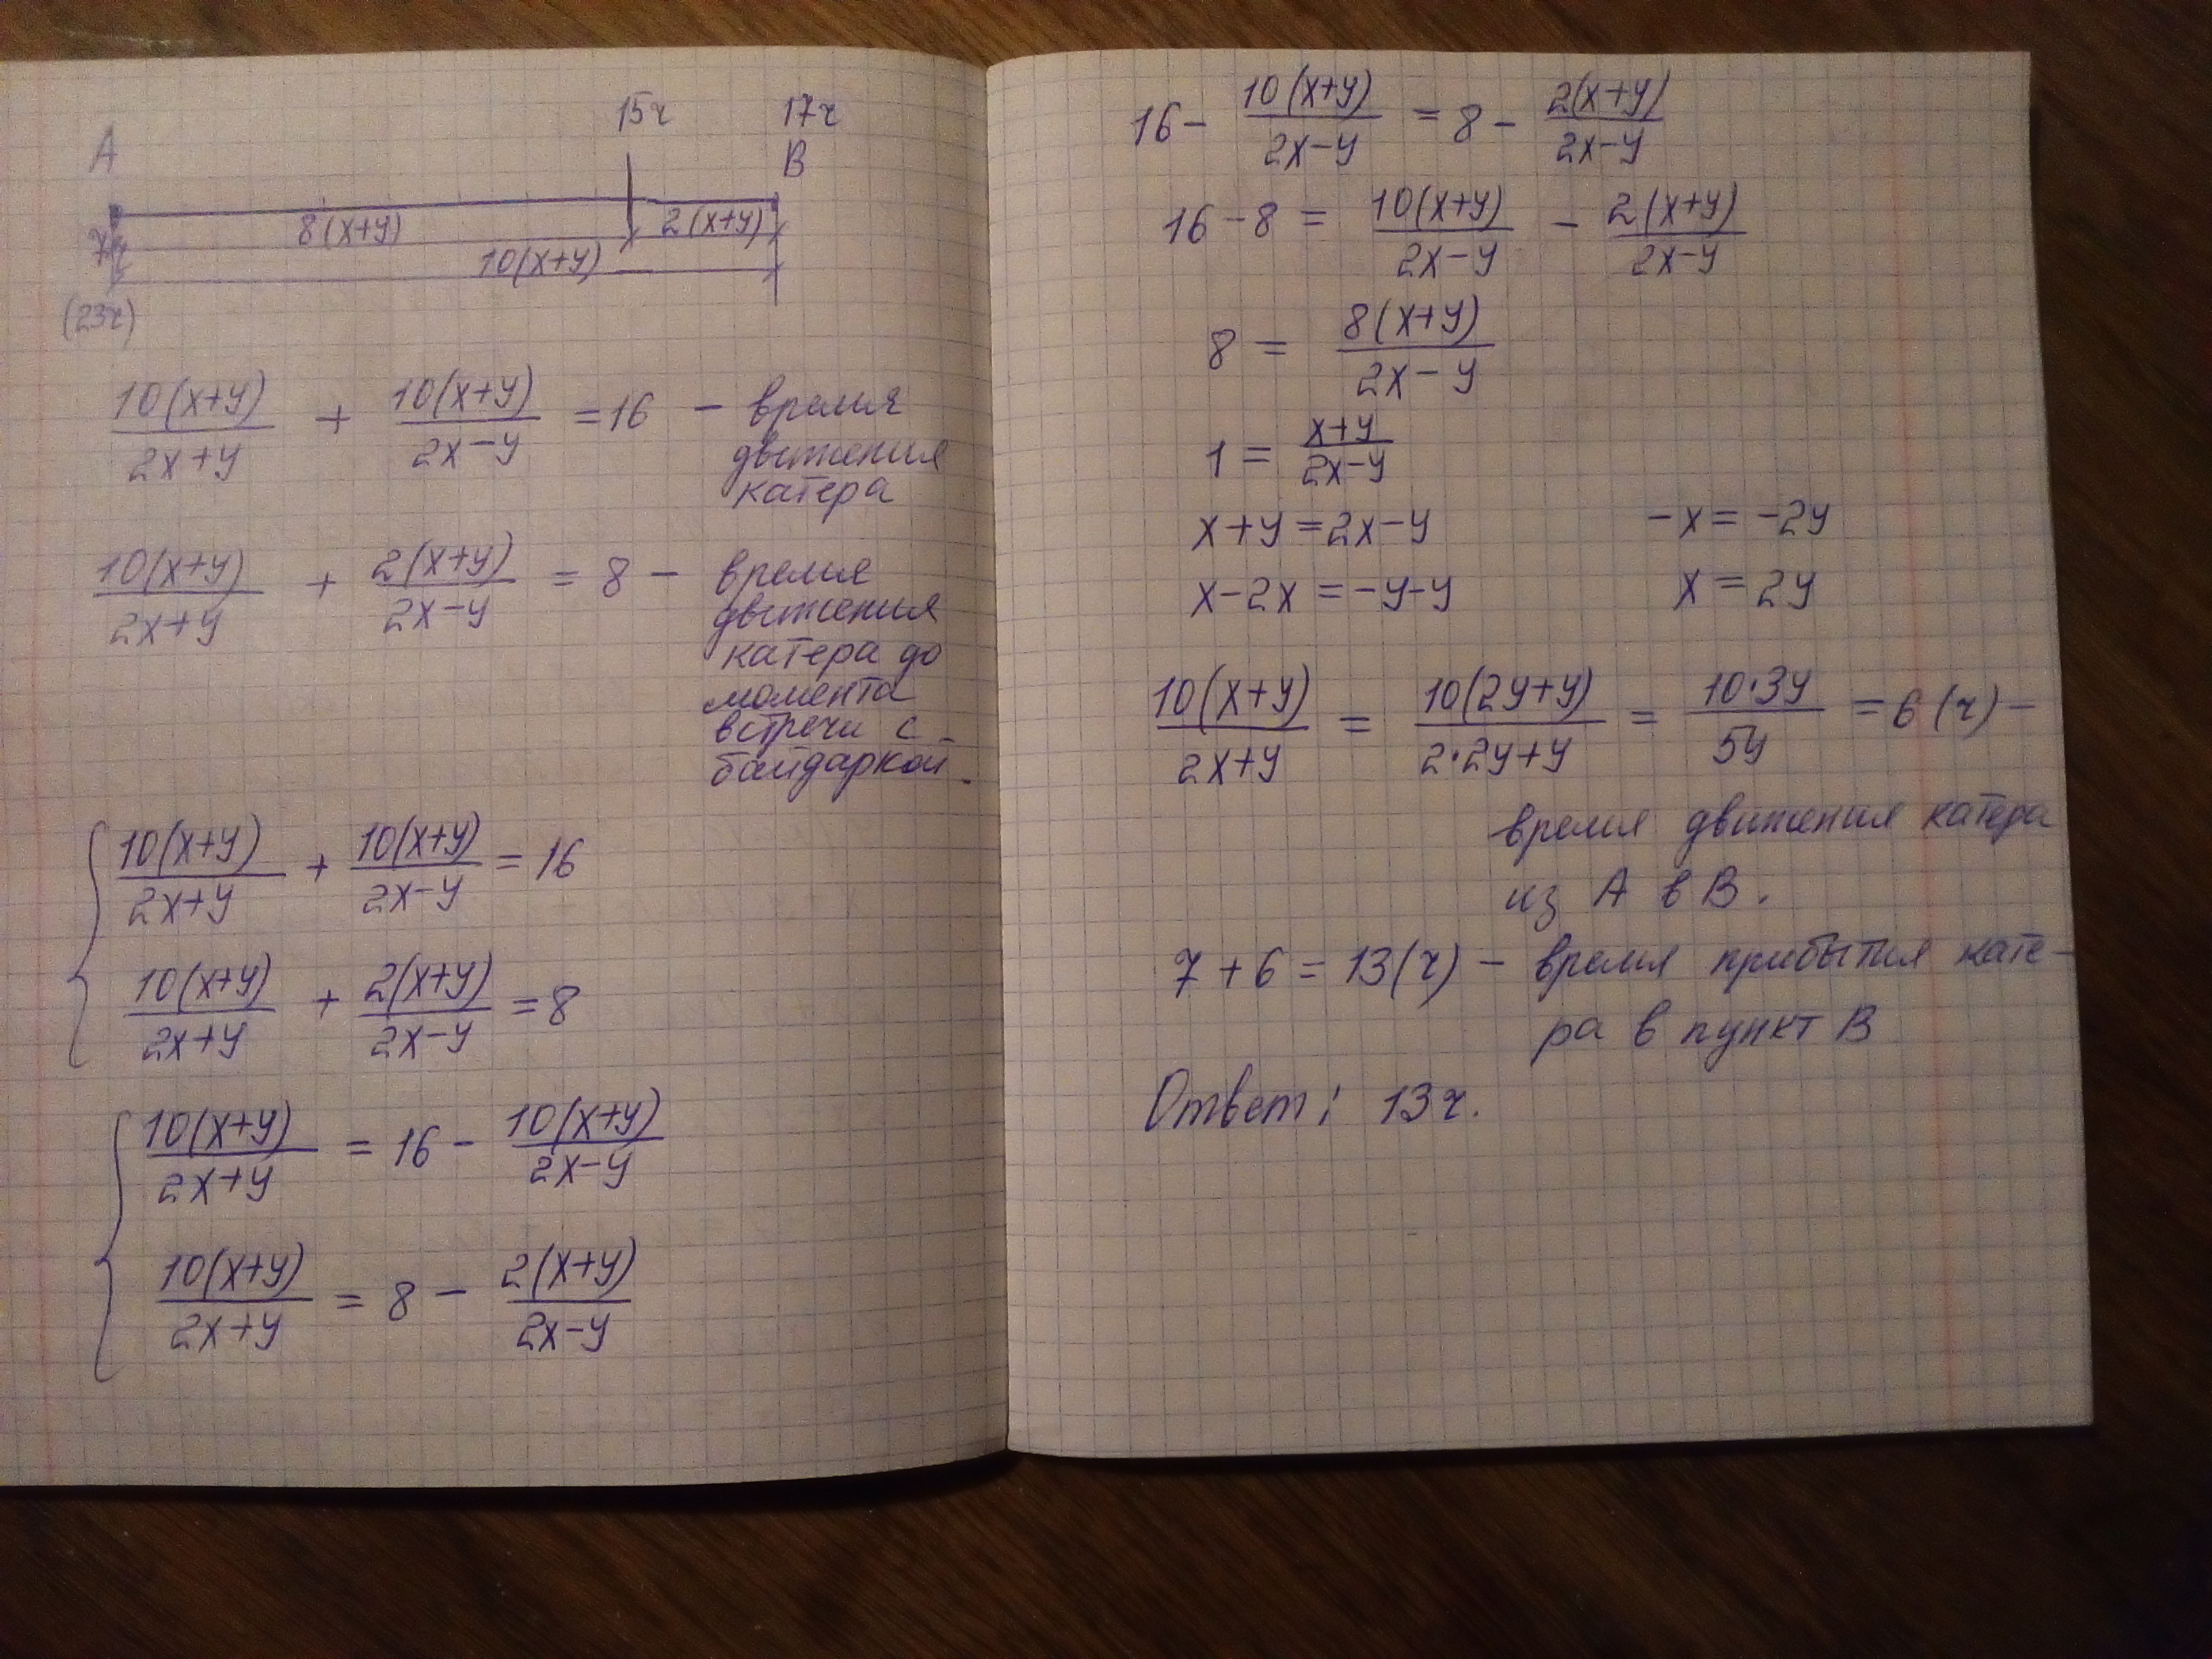 15ч 17ч
A B
8(x+y) 2(x+y)
7ч
10(x+y)
(23ч)
10(x+y)/2x+y + 10(x+y)/2x-y = 16 - время
движения
катера
10(x+y)/2x+y + 2(x+y)/2x-y = 8 - время
движения
катера до
момента
встречи с
байдаркой.
{ 10(x+y)/2x+y + 10(x+y)/2x-y = 16
10(x+y)/2x+y + 2(x+y)/2x-y = 8
{ 10(x+y)/2x+y = 16 - 10(x+y)/2x-y
10(x+y)/2x+y = 8 - 2(x+y)/2x-y
16 - 10(x+y)/2x-y = 8 - 2(x+y)/2x-y
16 - 8 = 10(x+y)/2x-y - 2(x+y)/2x-y
8 = 8(x+y)/2x-y
1 = x+y/2x-y
x+y = 2x-y -x = -2y
x-2x = -y-y x = 2y
10(x+y)/2x+y = 10(2y+y)/2·2y+y = 10·3y/5y = 6 (ч) -
время движения катера
из A в B.
7 + 6 = 13(ч) - время прибытия кате-
ра в пункт B
Ответ: 13 ч.